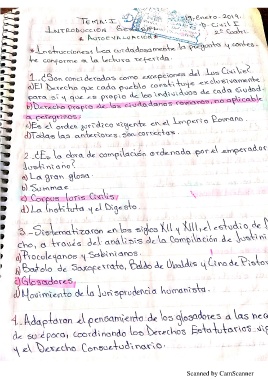 TEMA: I.
19. Enero. 2019.
INTRODUCCIÓN GENERAL
D. Civil I
* AUTOEVALUACIÓN *
2º Cuatri.
* Instrucciones: Lea cuidadosamente la pregunta y contes-
te conforme a la lectura referida.
1. ¿Son consideradas como excepciones del Ius Civile?
a) El Derecho que cada pueblo constituye exclusivamente
para sí y que es propio de los individuos de cada ciudad.
b) Derecho propio de los ciudadanos romanos, no aplicable
a peregrinos.
c) Es el orden jurídico vigente en el Imperio Romano.
d) Todas las anteriores son correctas.
2. ¿Es la obra de compilación ordenada por el emperador
Justiniano?
a) La gran glosa.
b) Summae
c) Corpus Ioris Civilis.
d) La Instituta y el Digesto.
3.- Sistematizaron en los siglos XII y XIII, el estudio de
cho, a través del análisis de la Compilación de Justini
a) Proculeyanos y Sabinianos.
b) Bartolo de Saxoferrato, Baldo de Ubaldis y Cino de Pistoy
c) Glosadores.
d) Movimiento de la Jurisprudencia humanista.
4. Adaptaron el pensamiento de los glosadores a las nec
de su época, coordinando los Derechos Estatutarios, vig
y el Derecho Consuetudinario.
Scanned by CamScanner